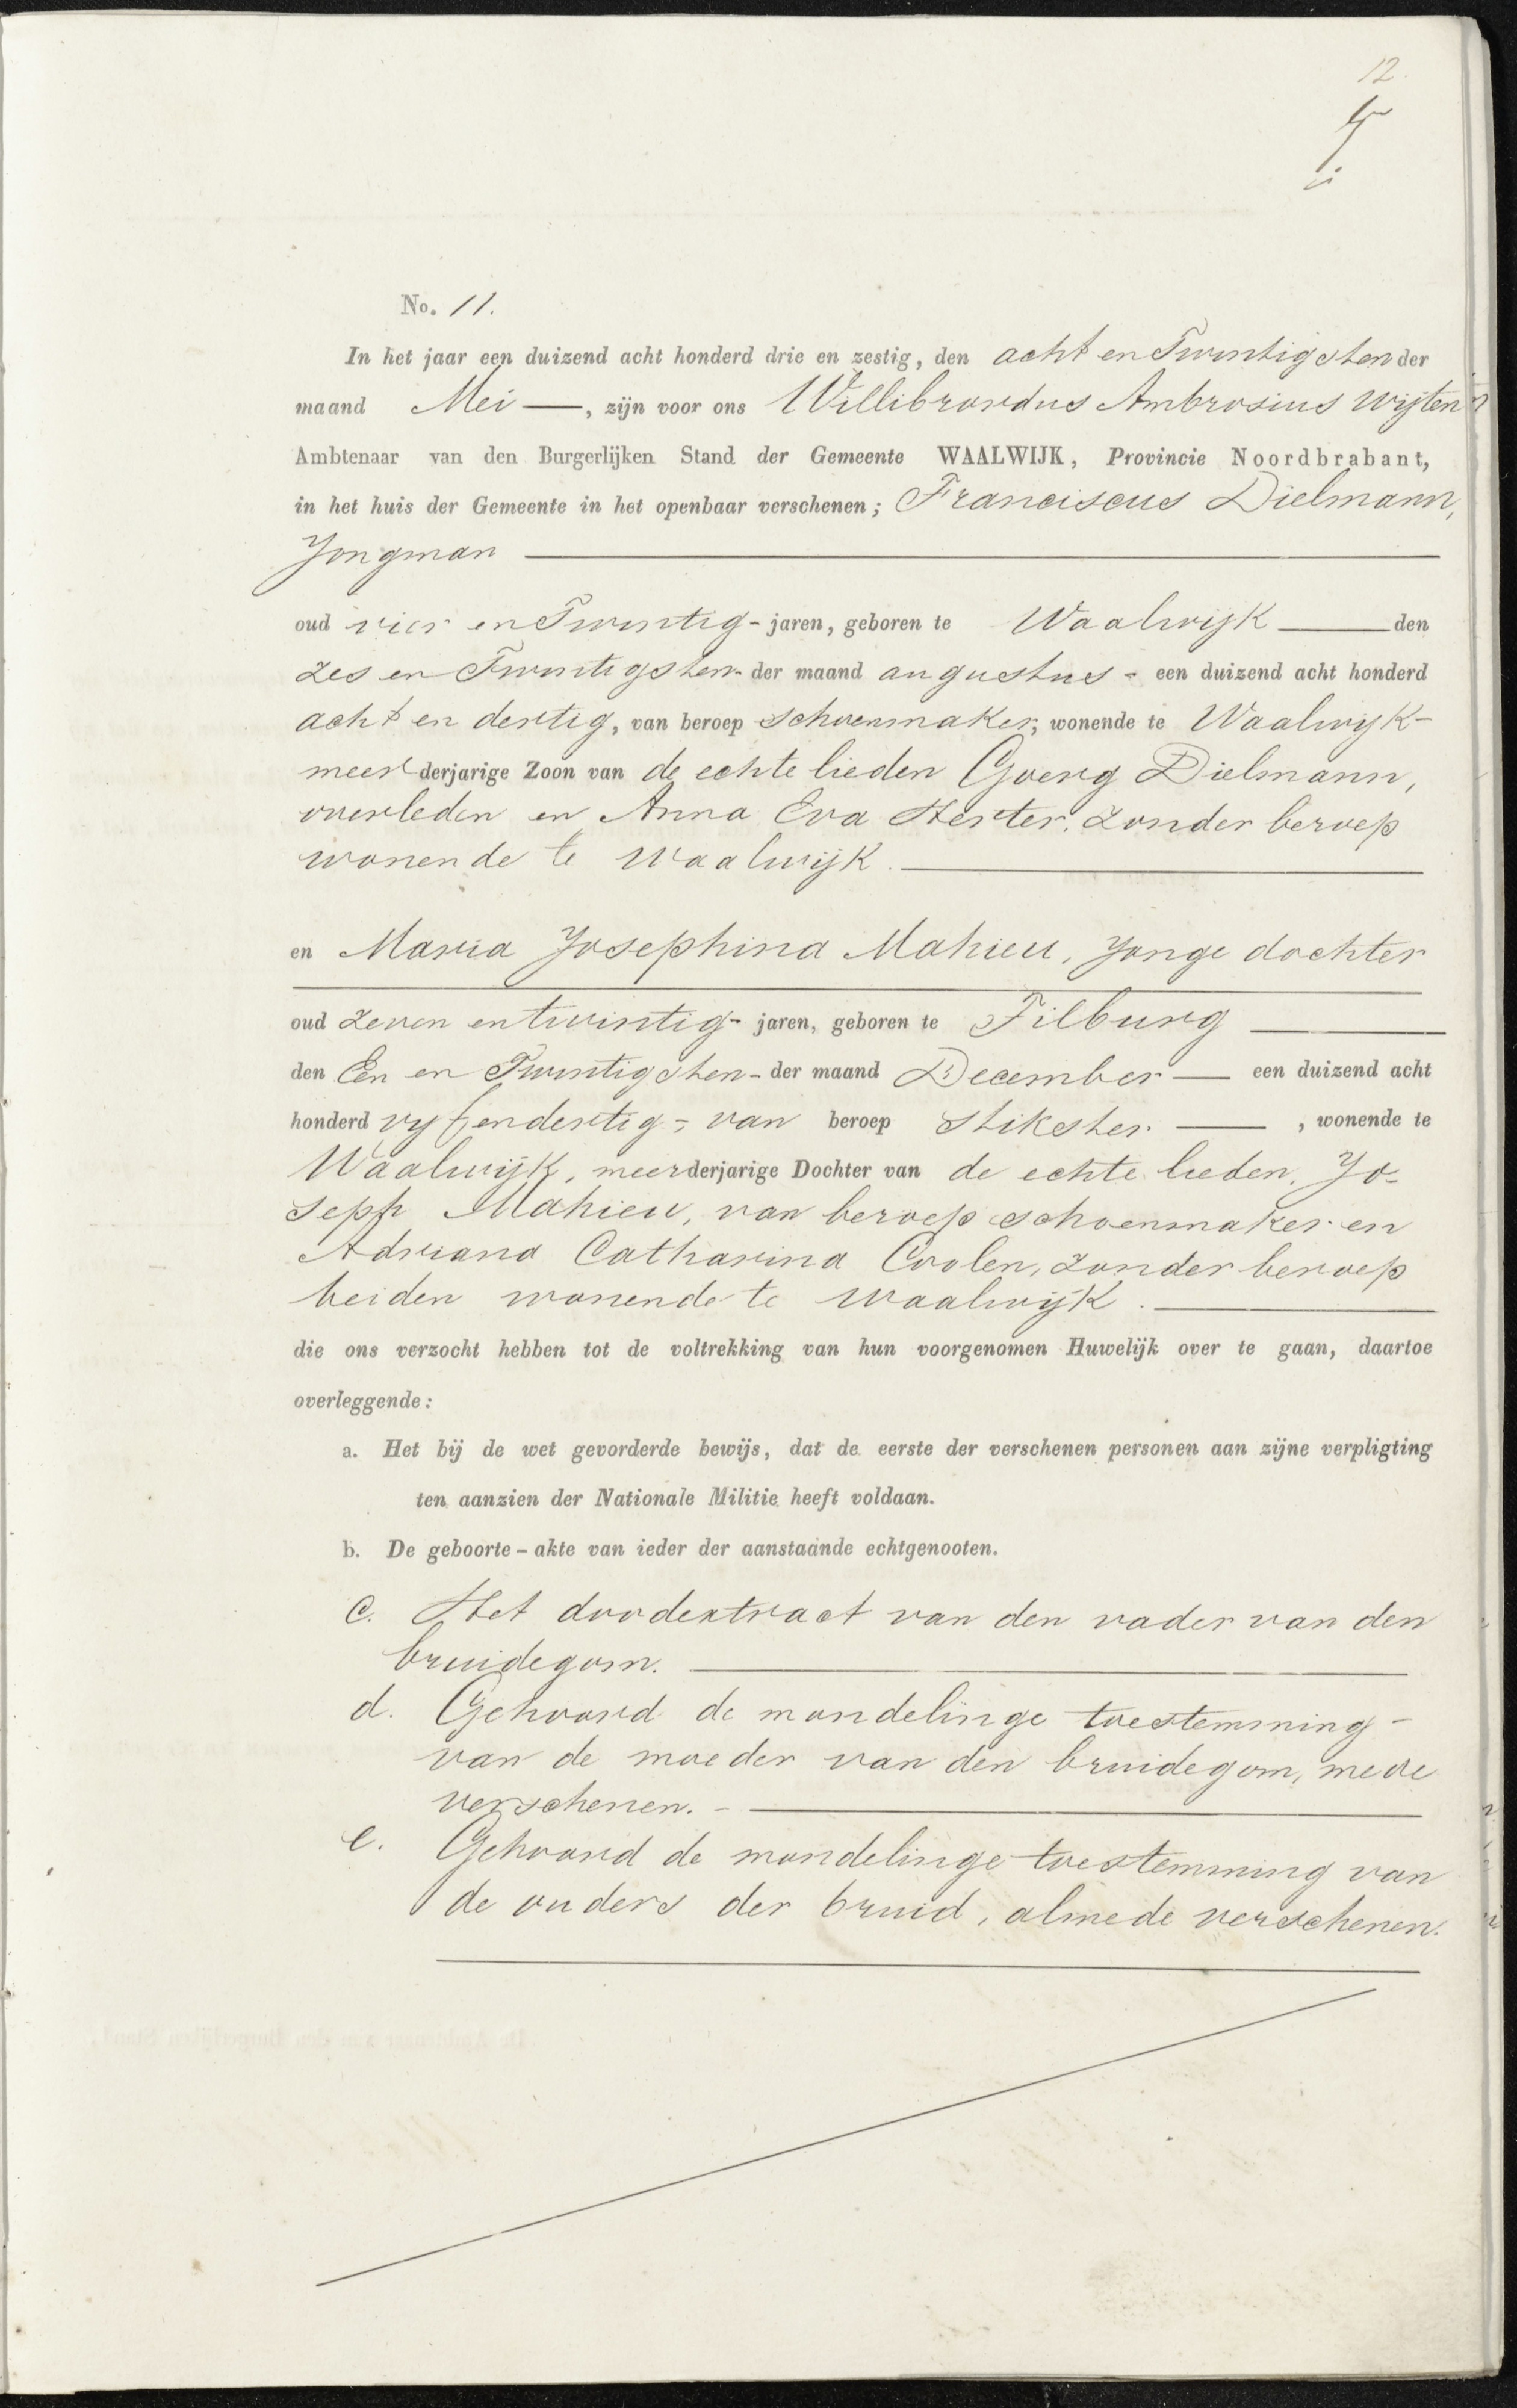 12.
No. 11.
In het jaar een duizend acht honderd drie en zestig, den acht en Twintigsten der
maand Mei —, zijn voor ons Willibrordus Ambrosius Wijten
Ambtenaar van den Burgerlijken Stand der Gemeente WAALWIJK, Provincie Noordbrabant,
in het huis der Gemeente in het openbaar verschenen; Franciscus Dielmann,
Jongman —
oud vier en Twintig - jaren, geboren te Waalwijk — den
zes en Twintigsten - der maand augustus - een duizend acht honderd
acht en dertig, van beroep schoenmaker, wonende te Waalwijk -
meerderjarige Zoon van de echte lieden Goerg Dielmann,
overleden en Anna Eva Herter, zonder beroep
wonende te Waalwijk. —
en Maria Josephina Mahieu, Jonge dochter
oud zeven en twintig - jaren, geboren te Tilburg —
den Een en Twintigsten - der maand December — een duizend acht
honderd vyf en dertig - van beroep stikster —, wonende te
Waalwijk, meerderjarige Dochter van de echte lieden, Jo-
seph Mahieu, van beroep schoenmaker en
Adriana Catharina Coolen, zonder beroep
beiden wonende te Waalwijk. —
die ons verzocht hebben tot de voltrekking van hun voorgenomen Huwelijk over te gaan, daartoe
overleggende:
a. Het bij de wet gevorderde bewijs, dat de eerste der verschenen personen aan zijne verpligting
ten aanzien der Nationale Militie heeft voldaan.
b. De geboorte-akte van ieder der aanstaande echtgenooten.
c. Het doodextract van den vader van den
bruidegom. —
d. Gehoord de mondelinge toestemming -
van de moeder van den bruidegom, mede
verschenen. - —
e. Gehoord de mondelinge toestemming van
de ouders der bruid, almede verschenen.